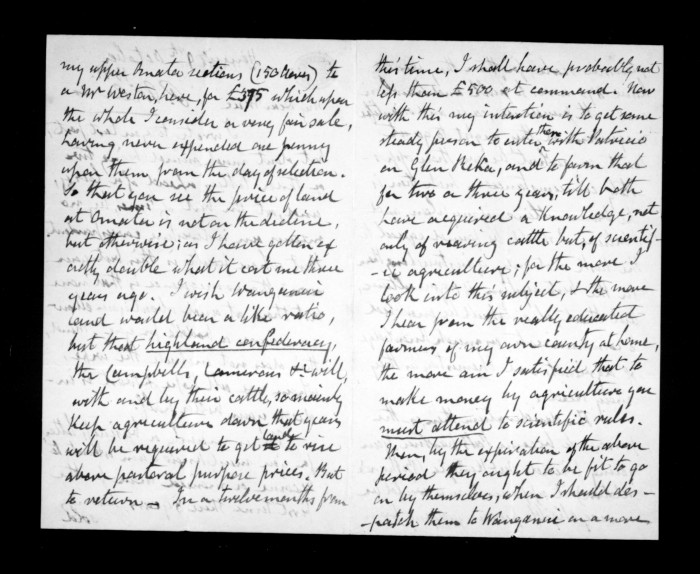 my upper Omata sections (150 Acres) to
a Mr Weston, here, for £375 which upon
the whole I consider a very fair sale,
having never expended one penny
upon them from the day of selection.
So that you see the price of land
at Omata is not on the decline,
but otherwise; as I have gotten ex
actly double what it cost me three
years ago. I wish Wanganui
land would bear a like ratio,
but that highland confederacy,
the Campbells, Camerons &c will,
with and by their cattle, so mainly
keep agriculture down that years
will be required to get land to rise
above pastoral purpose prices. But
to return — In a twelvemonths from
this time, I shall have probably, not
less than £500 at command. Now
with this my intention is to get some
steady person to enter there with Patricio
on Glen Reka, and to farm that
for two or three years, till both
have acquired a knowledge, not
only of rearing cattle but, of scientif-
-ic agriculture; for the more I
look into this subject, & the more
I hear from the really educated
farmers of my own county at home,
the more am I satisfied that to
make money by agriculture you
must attend to scientific rules.
Then, by the expiration of the above
period they ought to be fit to go
on by themselves, when I should des-
-patch them to Wanganui on a more